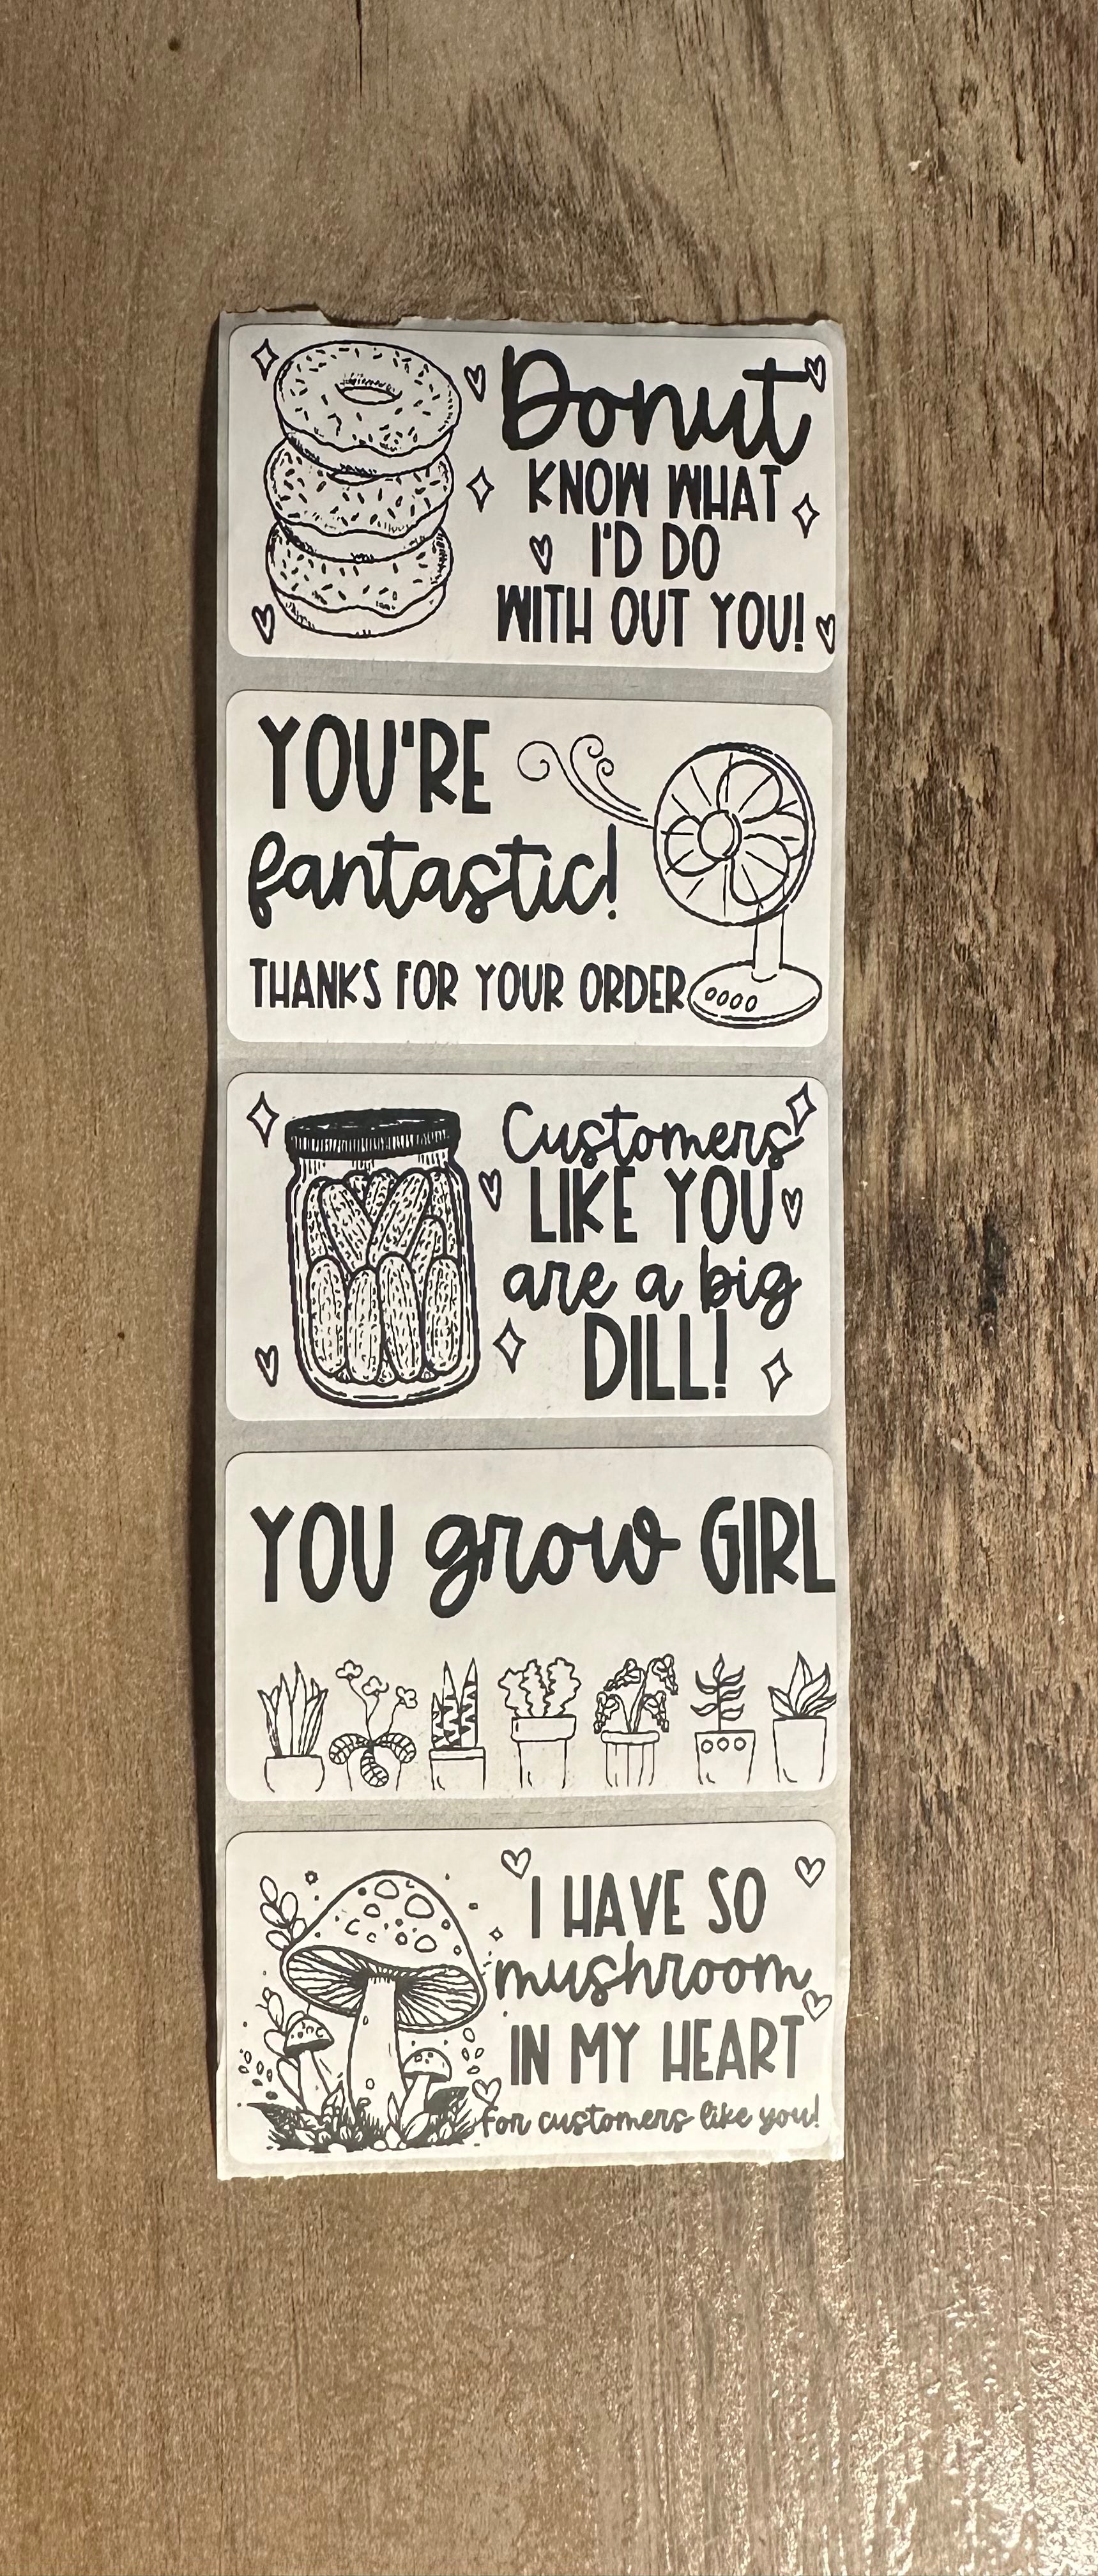 Donut
KNOW WHAT
I'D DO
WITH OUT YOU!
YOU'RE
fantastic!
THANKS FOR YOUR ORDER
Customers
LIKE YOU
are a big
DILL!
YOU grow GIRL
I HAVE SO
mushroom
IN MY HEART
for customers like you!